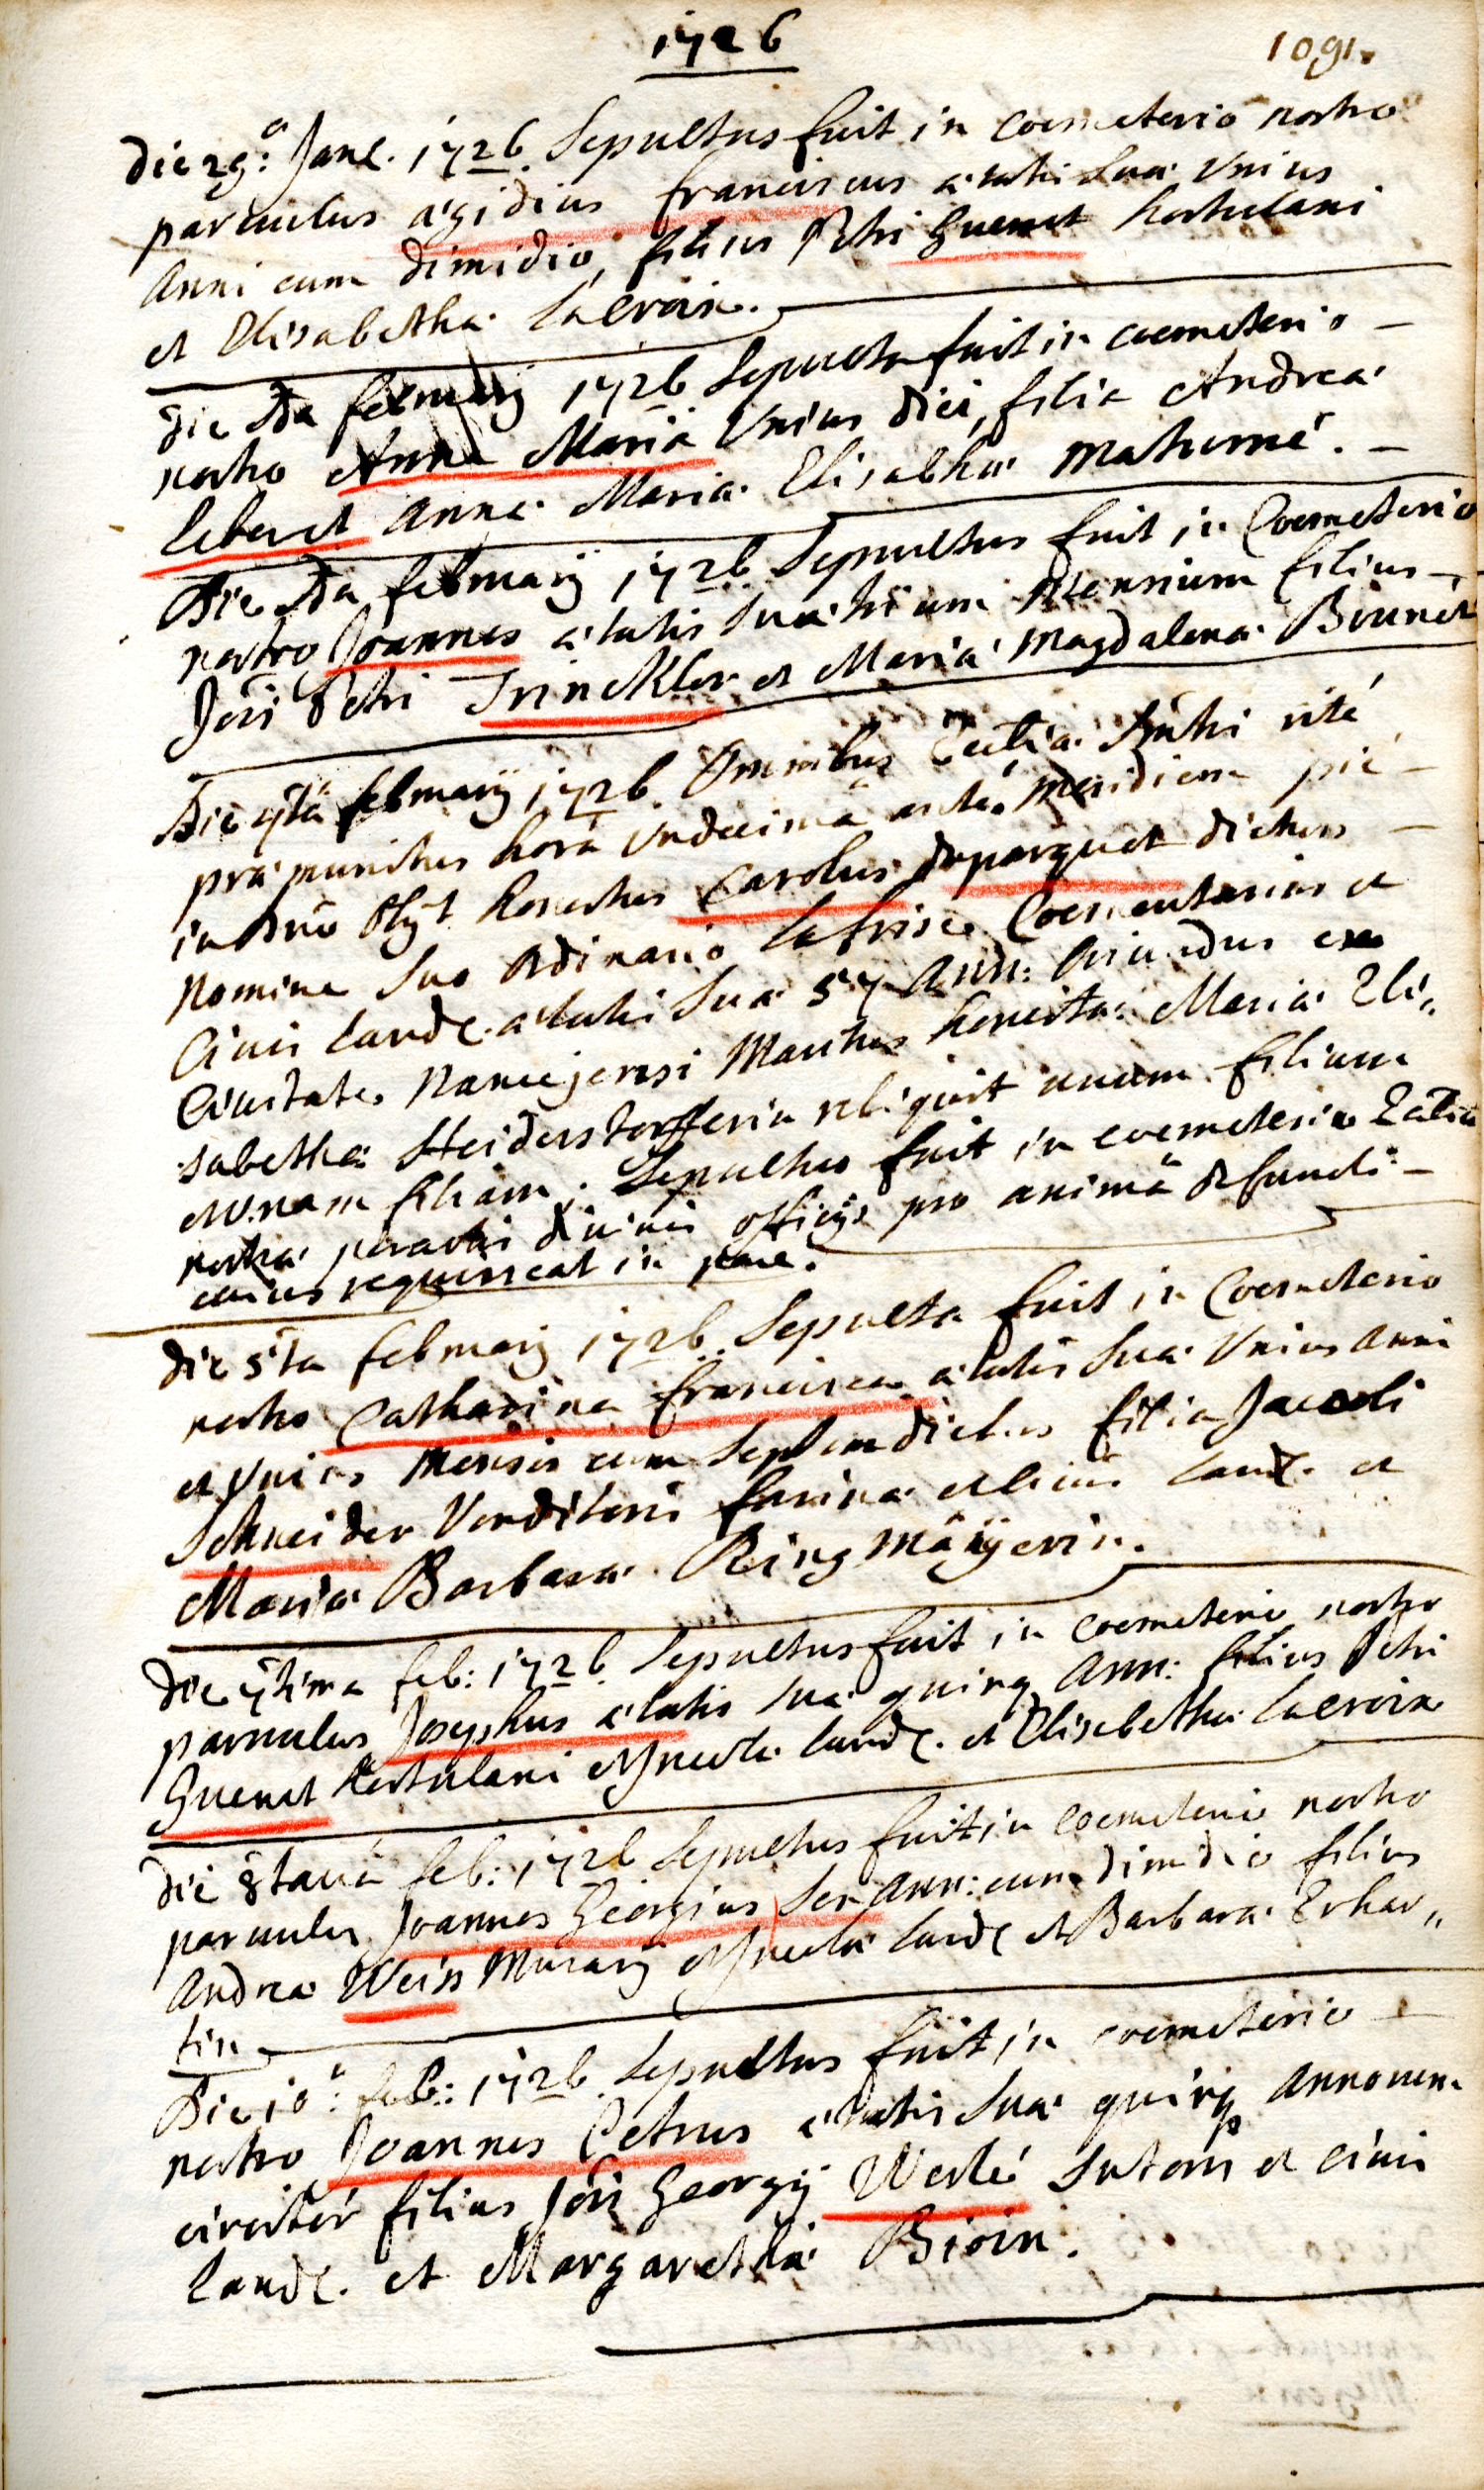 1726
1091.
die 29:a Janr. 1726 Sepultus fuit in coemeterio nostro
parvulus ægidius franciscus ætatis suæ Unius
Anni cum dimidio, filius Petri Guenet hortulani
et Elisabethæ Lacroix.
die 2da februarij 1726 Sepulta fuit in coemeterio –
nostro Anna Maria Unius diei, filia Andreæ
leberet Annæ Mariæ Elisabthæ Maturné. –
Die 2da februarij 1726 Sepultus fuit in Coemeterio
nostro Joannes ætatis suæ trium Mensium filius –
Jois Petri Trinckler et Mariæ Magdalenæ Brunet
Die 4ta februarij 1726. Omnibus Ecclæ Sntis rité
præmunitus horâ Undecimâ anté Meridiem pié –
in Dno Obijt honestus Carolus duparquet dictus –
Nomine suo Ordinario Lafrise Coementarius et
Civis Landt. ætatis suæ 57 Ann: oriundus ex
Civitate Nancejensi Maritus honestæ Mariæ Eli„
sabethæ Heiderstorfferin reliquit unum filium
et unam filiam; Sepultus fuit in coemeterio Eccliæ
nostræ peractis divinis officijs pro animâ defuncti –
cuius requiescat in pace.
die 5ta februarij 1726 Sepulta fuit in Coemeterio
nostro Catharina francisca ætatis suæ Unius Anni
et Unius Mensis cum Septem diebus filia Jacobi
Schneider Venditoris farinæ et Civis Landt. et
Mariæ Barbaræ Ringmäijerin.
die 7tima feb: 1726 Sepultus fuit in coemeterio nostro
parvulus Josephus ætatis suæ quinq Ann: filius Petri
Guenet hortulani et Incolæ Landt. et Elisabethæ Lacroix
die 8tavâ feb: 1726 Sepultus fuit in coemeterio nostro
parvulus Joannes Georgius Sex Ann: cum dimidio filius
Andreæ Weiss Murarij et Incolæ Landt et Barbaræ Erhar„
tin
Die 10a: feb: 1726 Sepultus fuit in coemeterio –
nostro Joannes Petrus ætatis suæ quinq Annorum
circitér filius Jois Georgij Werlé Sutoris et civis
Landt. et Margarethæ Bioin.